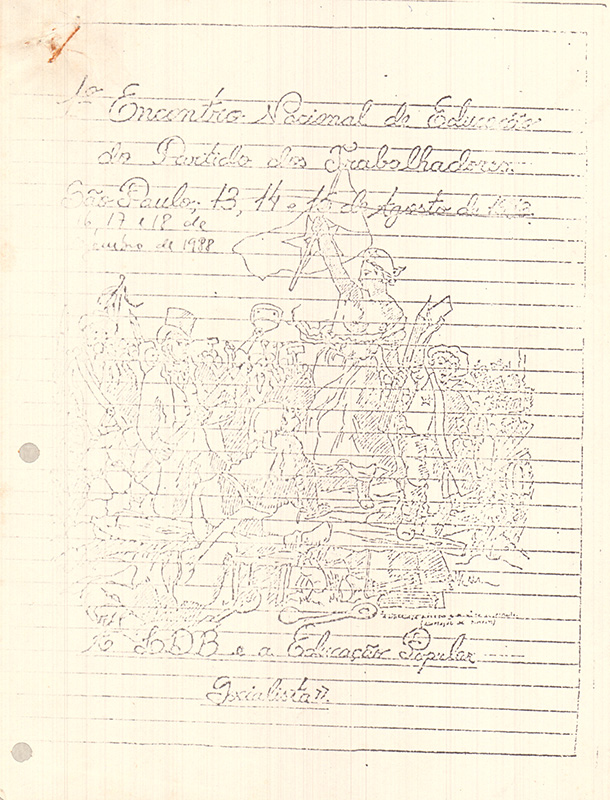 1º Encontro Nacional de Educação
do Partido dos Trabalhadores.
São Paulo; 13, 14 e 15 de Agosto de
16, 17 e 18 de
de 1988
LDB e a Educação Popular
Socialista".